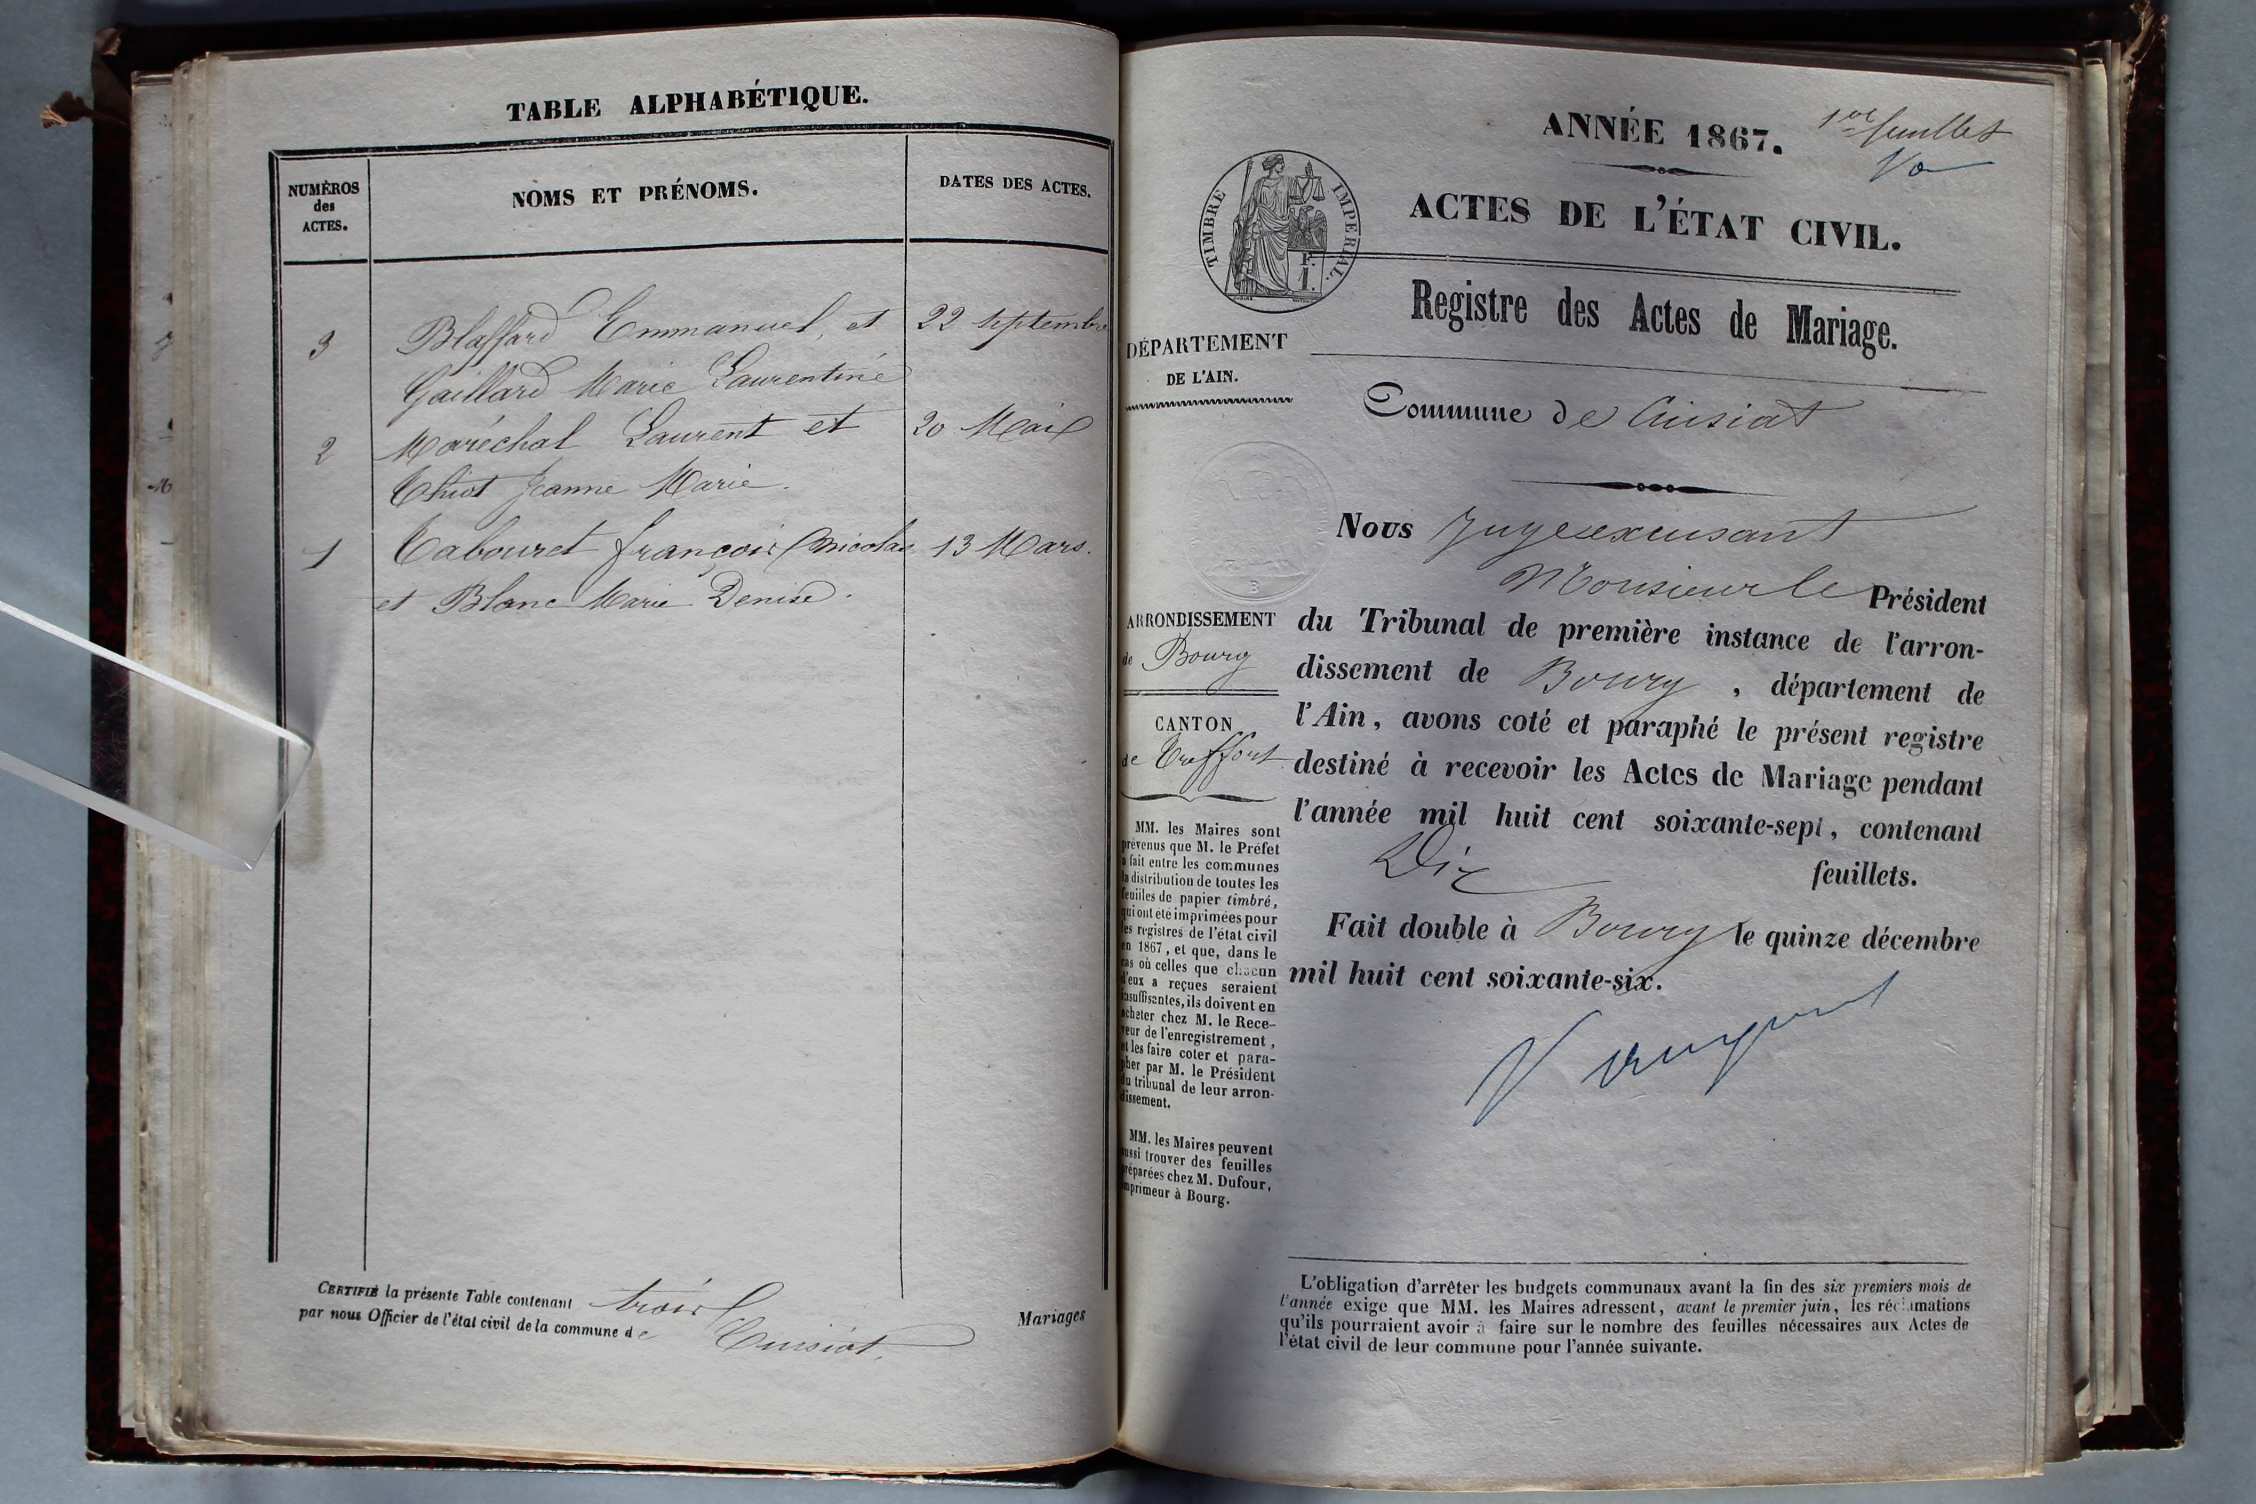 TABLE ALPHABÉTIQUE.
NUMÉROS
des
ACTES.
NOMS ET PRÉNOMS.
DATES DES ACTES.
3 Blaffard Emmanuel, et 22 septembre
Gaillard Marie Laurentine
2 Maréchal Laurent et 20 Mai
Jeanne Marie.
1 Tabouret françois Nicolas 13 Mars.
et Blanc Marie Denise.
CERTIFIÉ la présente Table contenant trois Mariages
par nous Officier de l'état civil de la commune de Cuisiat.
ANNÉE 1867.
1er feuillet
ACTES DE L'ÉTAT CIVIL.
TIMBRE IMPÉRIAL.
Registre des Actes de Mariage.
DÉPARTEMENT
DE L'AIN.
Commune de Cuisiat
ARRONDISSEMENT
de Bourg
CANTON
de Treffort
MM. les Maires sont
prévenus que M. le Préfet
a fait entre les communes
la distribution de toutes les
feuilles de papier timbré,
qui ont été imprimées pour
les registres de l'état civil
en 1867, et que, dans le
cas où celles que chacun
d'eux a reçues seraient
insuffisantes, ils doivent en
acheter chez M. le Rece-
veur de l'enregistrement,
et les faire coter et para-
pher par M. le Président
du tribunal de leur arron-
dissement.
MM. les Maires peuvent
aussi trouver des feuilles
préparées chez M. Dufour,
imprimeur à Bourg.
Nous Juge excusant
Monsieur le Président
du Tribunal de première instance de l'arron-
dissement de Bourg, département de
l'Ain, avons coté et paraphé le présent registre
destiné à recevoir les Actes de Mariage pendant
l'année mil huit cent soixante-sept, contenant
Dix feuillets.
Fait double à Bourg le quinze décembre
mil huit cent soixante-six.
L'obligation d'arrêter les budgets communaux avant la fin des six premiers mois de
l'année exige que MM. les Maires adressent, avant le premier juin, les réclamations
qu'ils pourraient avoir à faire sur le nombre des feuilles nécessaires aux Actes de
l'état civil de leur commune pour l'année suivante.